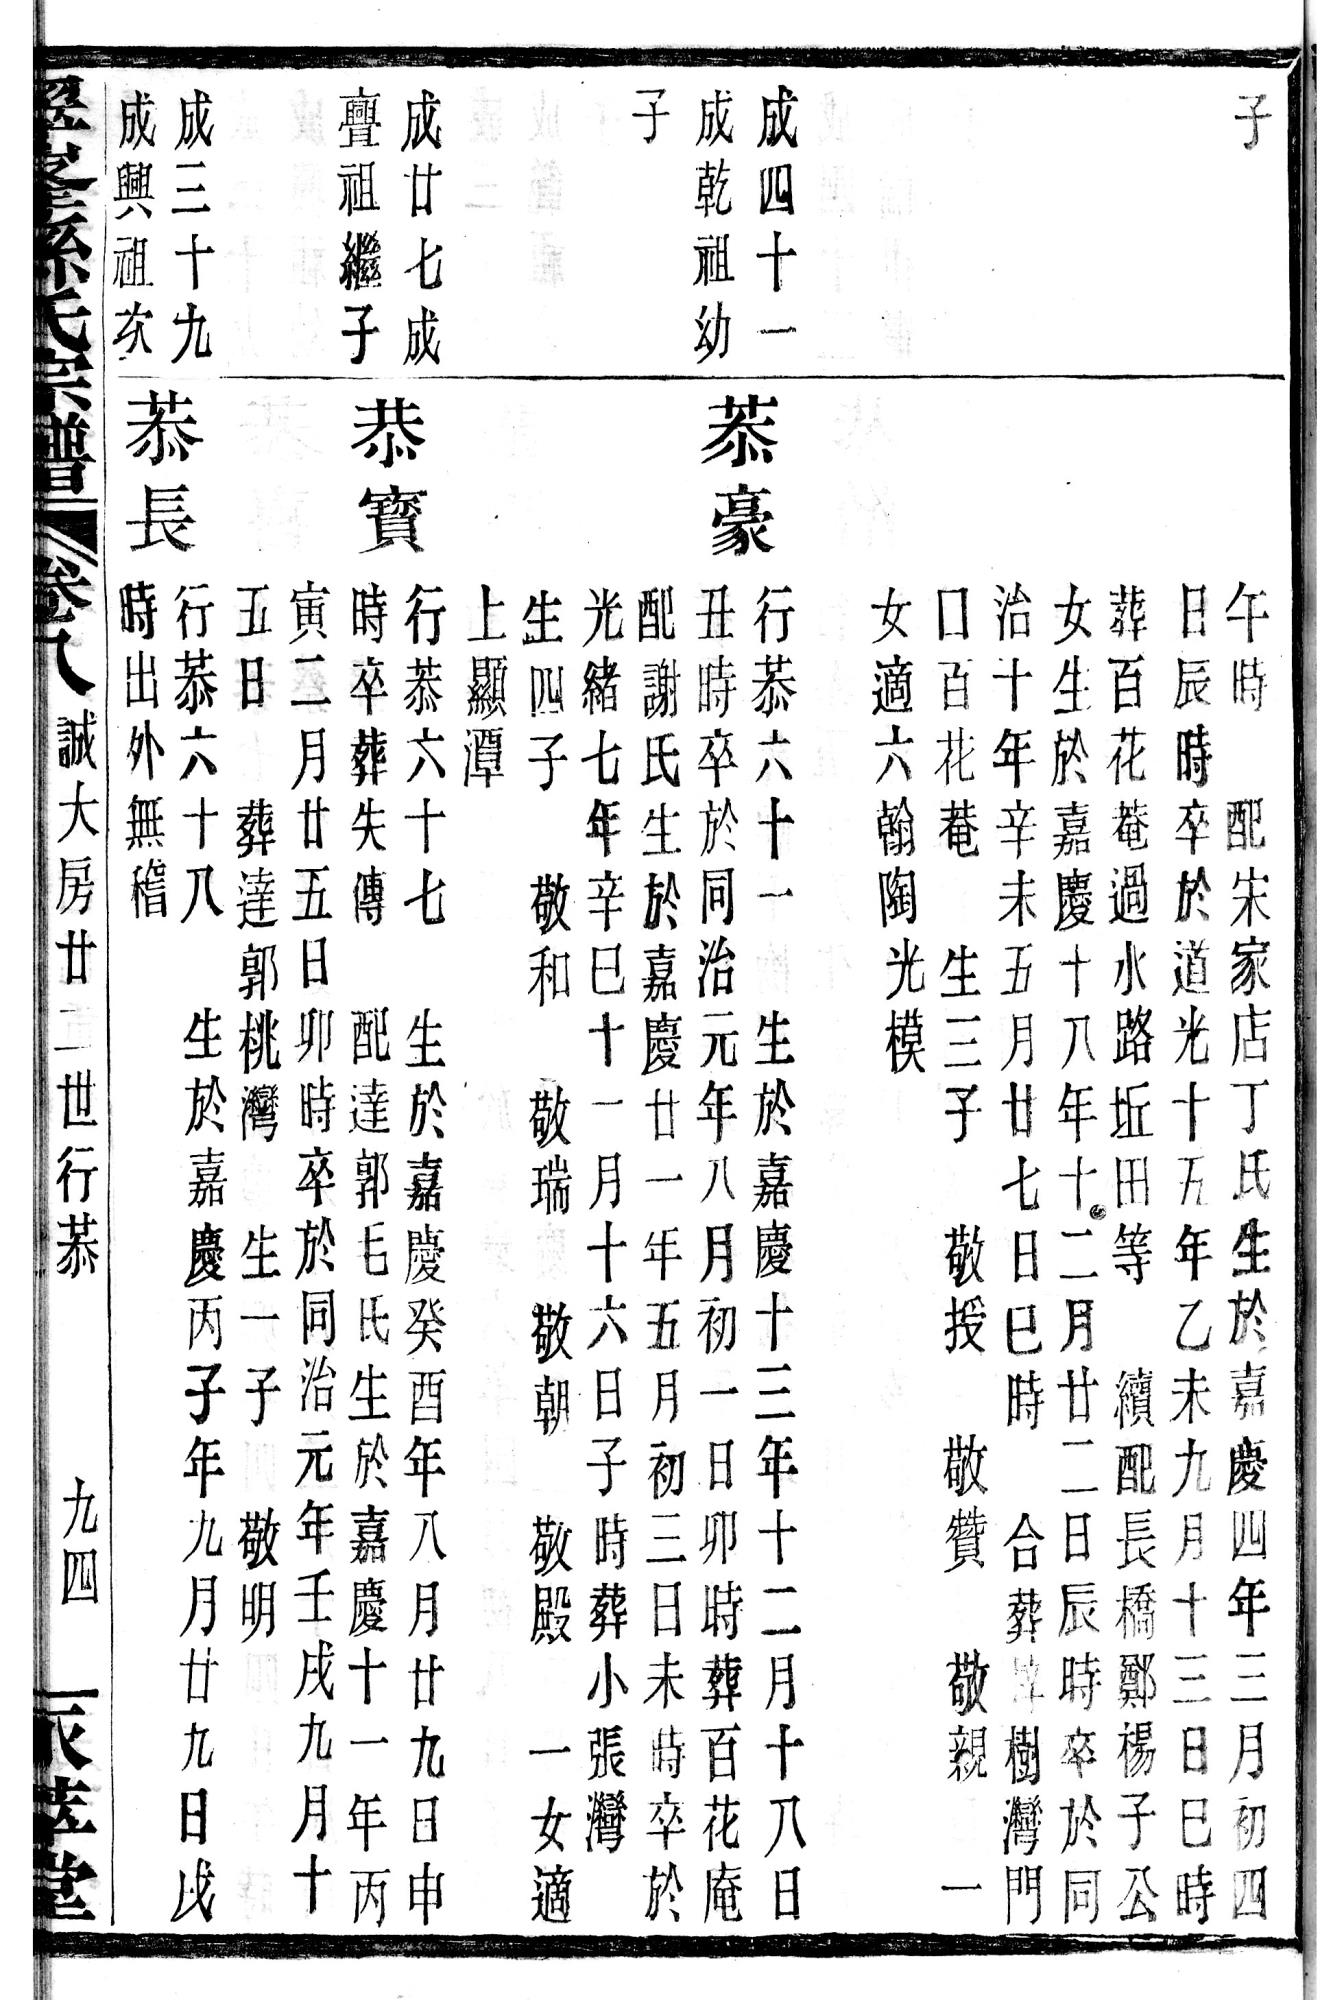 子
午時　配宋家店丁氏生於嘉慶四年三月初四
日辰時卒於道光十五年乙未九月十三日巳時
葬百花菴過水路坵田等　續配長橋鄭楊子公
女生於嘉慶十八年十二月廿二日辰時卒於同
治十年辛未五月廿七日巳時　合葬樹灣門
口百花菴　生三子　敬授　敬贊　敬親　一
女適六翰陶光模
成四十一
成乾祖幼
子
恭豪
行恭六十一　生於嘉慶十三年十二月十八日
丑時卒於同治元年八月初一日卯時葬百花庵
配謝氏生於嘉慶廿一年五月初三日未時卒於
光緒七年辛巳十一月十六日子時葬小張灣
生四子　敬和　敬瑞　敬朝　敬殿　一女適
上顯潭
成廿七成
亹祖繼子
恭寳
行恭六十七　生於嘉慶癸酉年八月廿九日申
時卒葬失傳　配達郭毛氏生於嘉慶十一年丙
寅二月廿五日卯時卒於同治元年壬戌九月十
五日　葬達郭桃灣　生一子　敬明
成三十九
成興祖次
恭長
行恭六十八　生於嘉慶丙子年九月廿九日戌
時出外無稽
孫氏宗譜　卷八　誠大房廿二世行恭　九四　堂